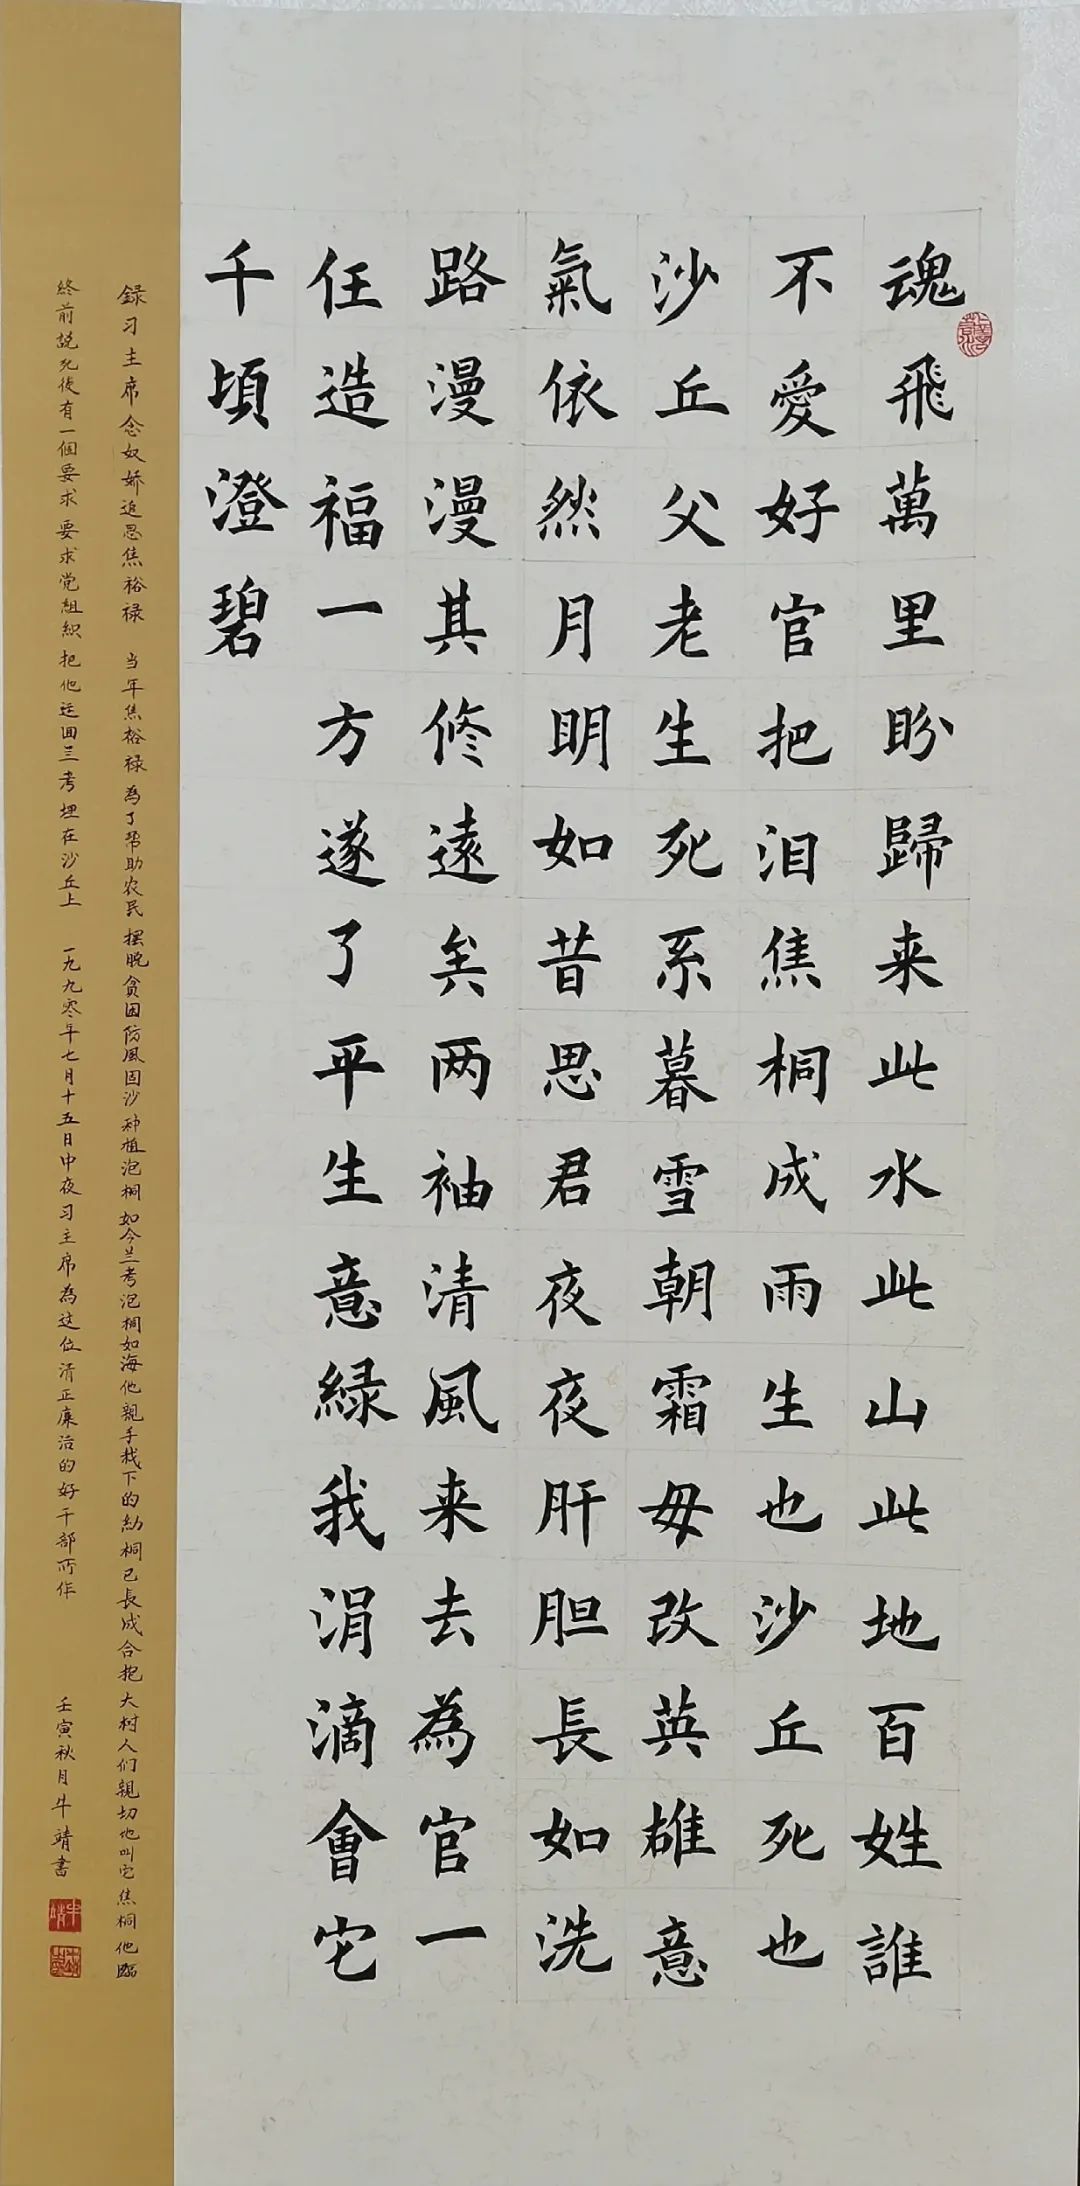 魂飛萬里盼歸来此水此山此地百姓誰
不愛好官把泪焦桐成雨生也沙丘死也
沙丘父老生死系暮雪朝霜毋改英雄意
氣依然月明如昔思君夜夜肝胆長如洗
路漫漫其修遠矣两袖清風来去為官一
任造福一方遂了平生意緑我涓滴會它
千頃澄碧
録习主席念奴娇追思焦裕禄 当年焦裕禄為了帮助农民摆脱貧困防風固沙种植泡桐如今兰考泡桐如海他親手栽下的幼桐已長成合抱大树人们親切地叫它焦桐他臨
終前説死後有一個要求要求党組織把他运回兰考埋在沙丘上 一九九零年七月十五日中夜习主席為这位清正廉洁的好干部所作 壬寅秋月牛靖書
牛靖